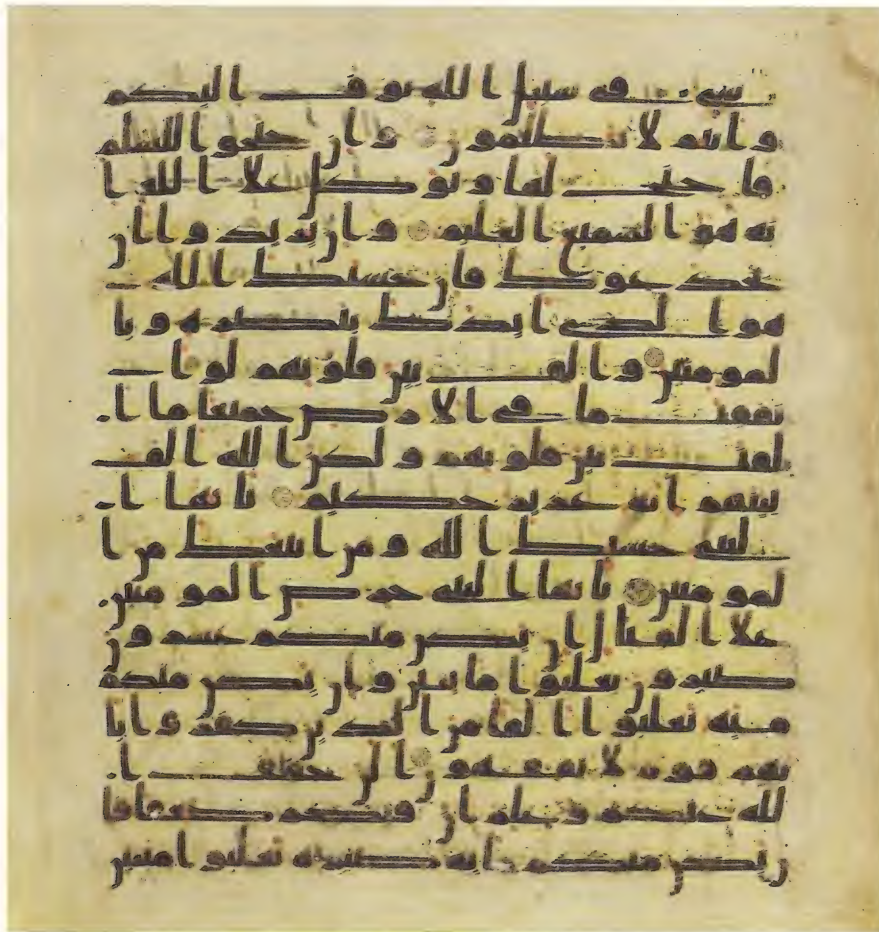 شى فى سبيل الله يوف اليكم
وانتم لا تظلمون وان جنحوا للسلم
فاجنح لها وتوكل على الله ا
نه هو السميع العليم وان يريدوا ان
يخدعوك فان حسبك الله
هو الذى ايدك بنصره وبا
لمومنين والف بين قلوبهم لو ا
نفقت ما فى الارض جميعا ما ا
لفت بين قلوبهم ولكن الله الف
بينهم انه عزيز حكيم يايها ا
لنبى حسبك الله ومن اتبعك من ا
لمومنين يايها النبى حرض المومنين
على القتال ان يكن منكم عشرون
صبرون يغلبوا مايتين وان يكن منكم
مية يغلبوا الفا من الذين كفروا با
نهم قوم لا يفقهون الن خفف ا
لله عنكم وعلم ان فيكم ضعفا فا
ن يكن منكم ماية صبره يغلبوا مايتين